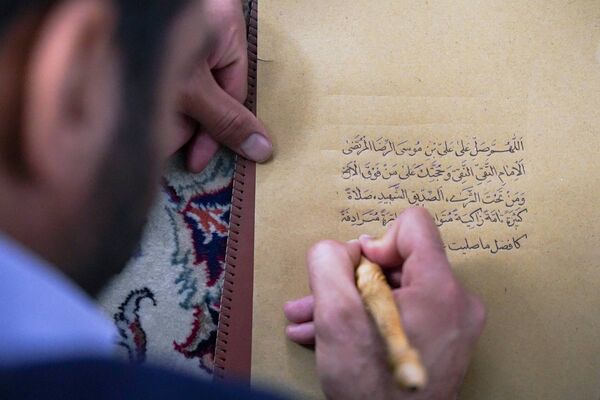 اللهم صل علی علی بن موسی الرضا المرتضی
الامام التقی النقی و حجتک علی من فوق الارض
و من تحت الثری، الصدیق الشهید، صلاة
کثیرة تامة زاکیة متوا ة مترادفة
کافضل ما صلیت